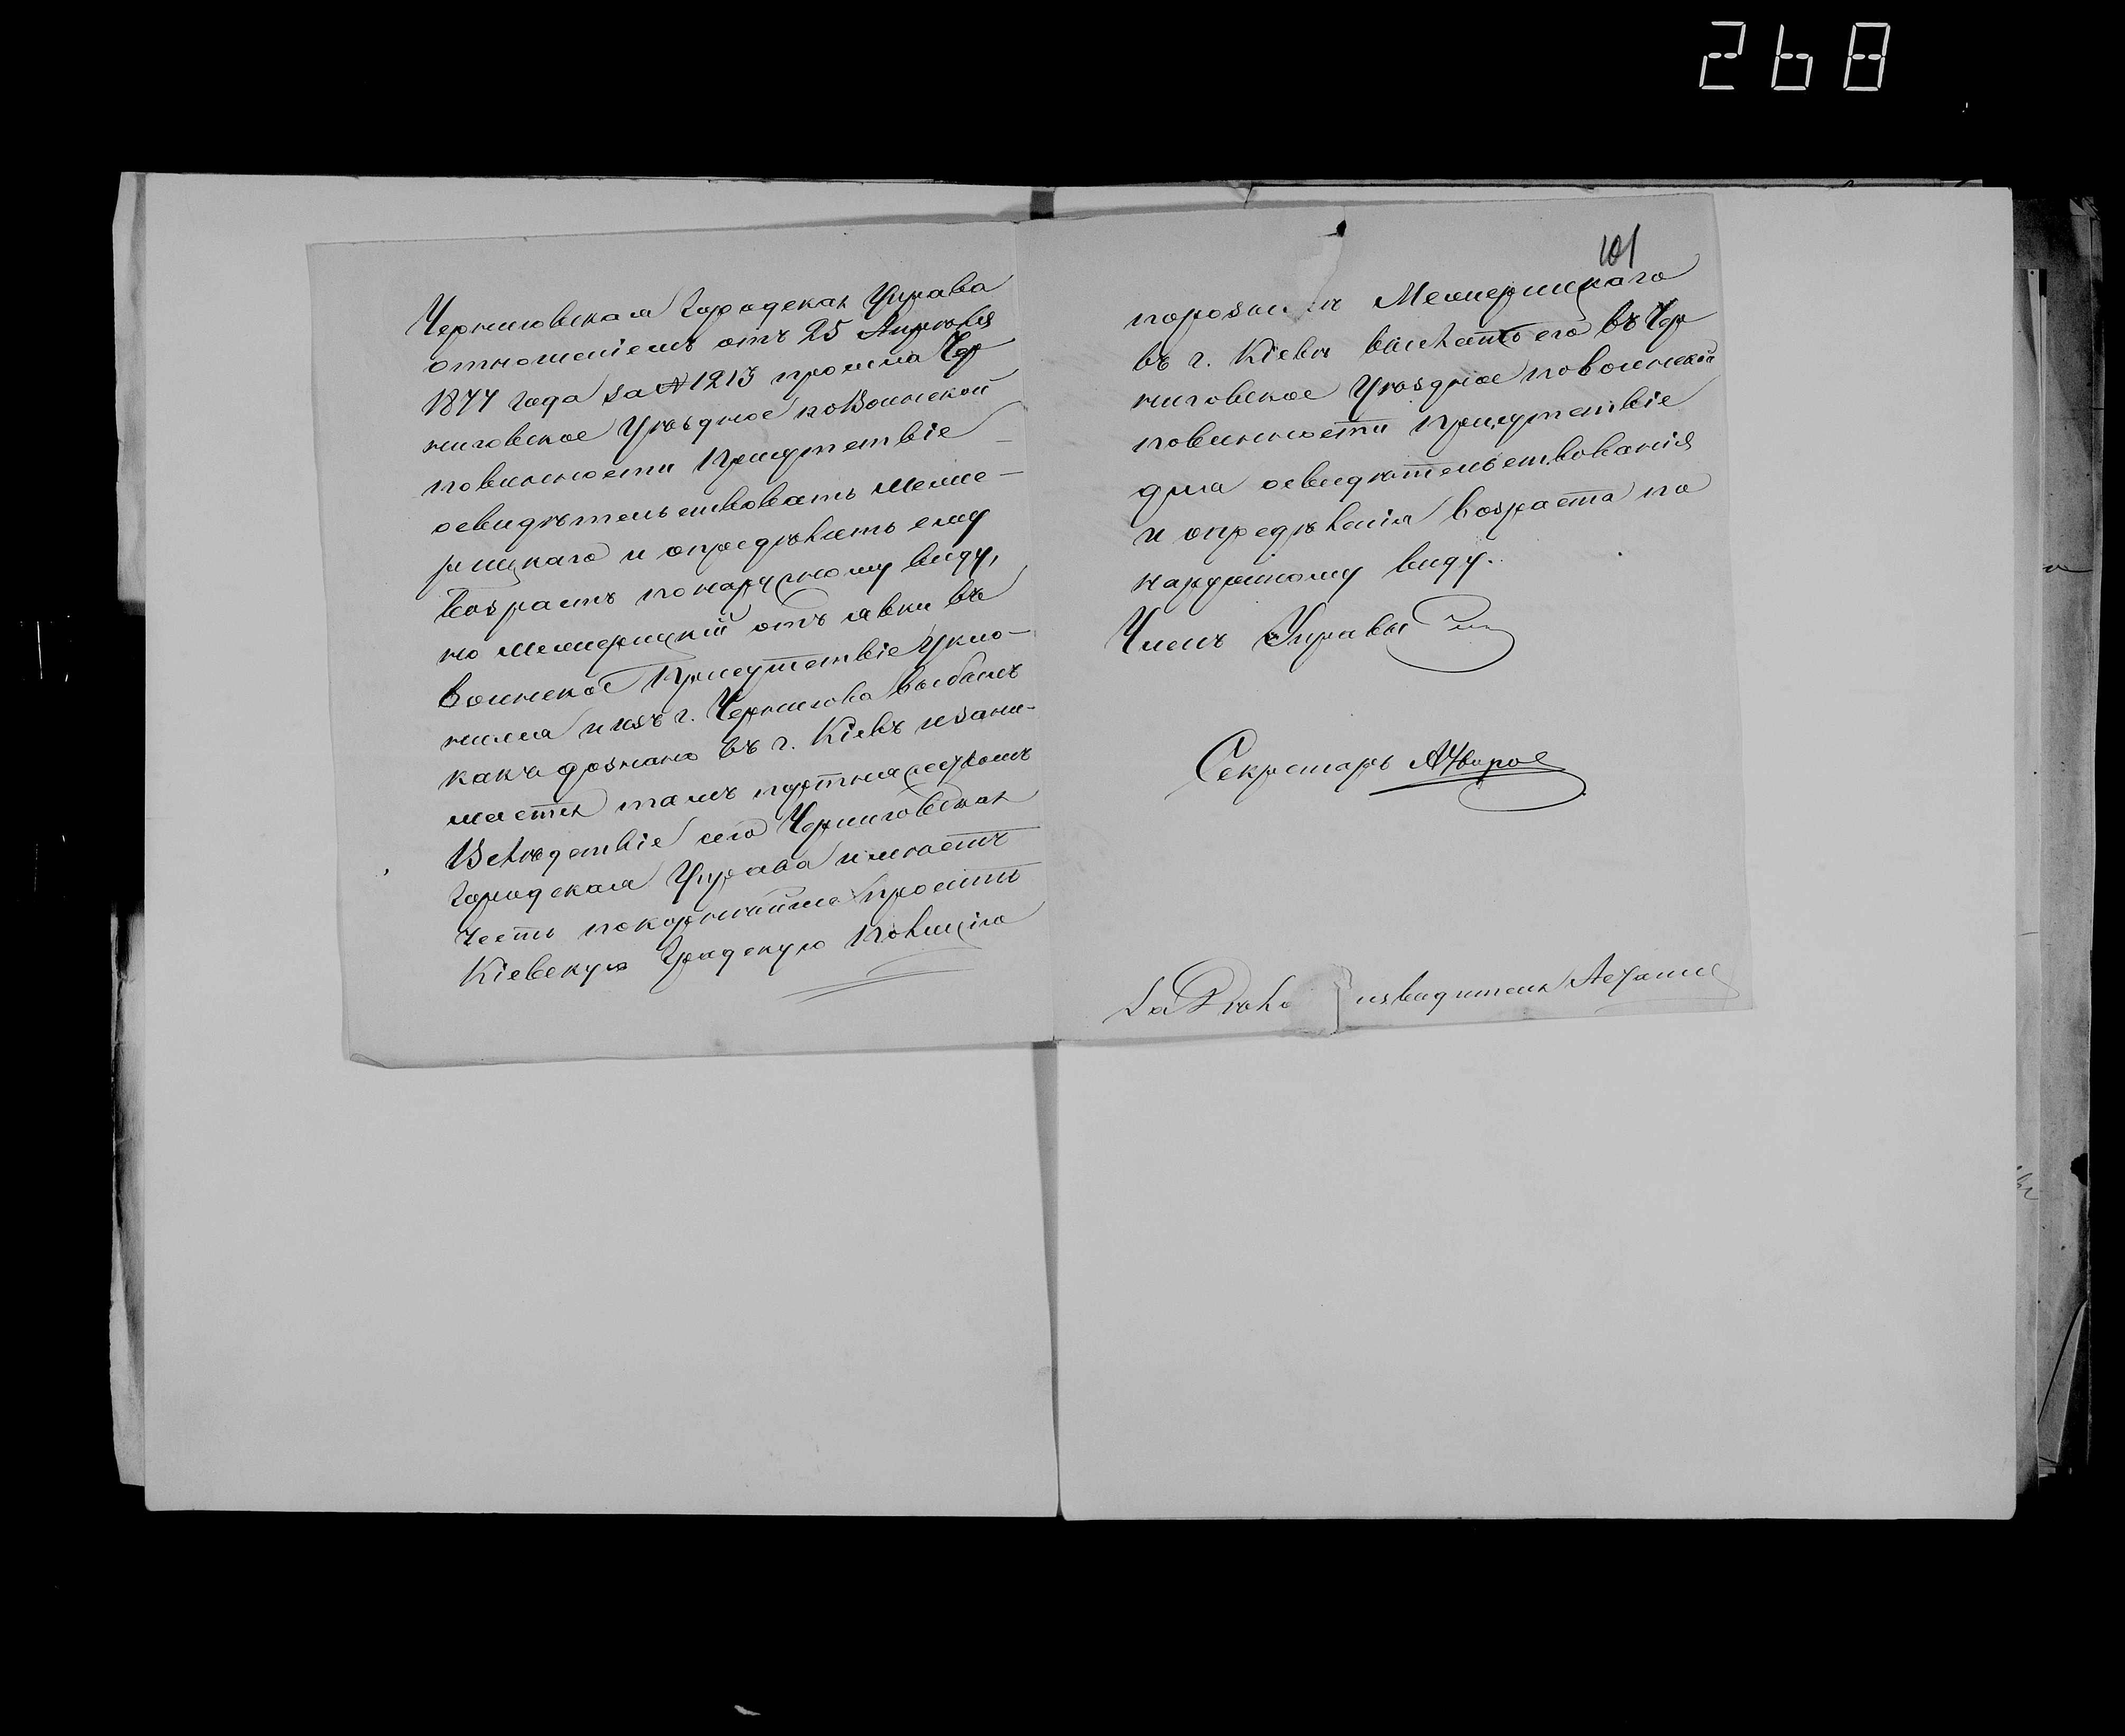 268
101
Черниговская Городская Управа
отношеніемъ отъ 25 Апрѣля
1877 года за № 1213 просила Чер
ниговское Уѣздное по Воинской
повинности Присутствіе
освидѣтельствовать Меже-
рицкаго и опредѣлить ему
возрастъ по наружному виду,
но Межерицкій отъ явки въ
воинское Присутствіе укло-
нился и изъ г. Чернигова выбылъ
какъ дознано въ г. Кіевъ и зани-
мается тамъ
Вслѣдствіе сего Черниговская
Городская Управа имѣетъ
честь покорнѣйше просить
Кіевскую Градскую Полицію
Межерицкаго
въ г. Кіевѣ выслать его въ Чер
ниговское Уѣздное по воинской
повинности Присутствіе
для освидѣтельствованія
и опредѣленія возраста по
наружному виду.
Членъ Управы
Секретарь
За Дѣло изводителя